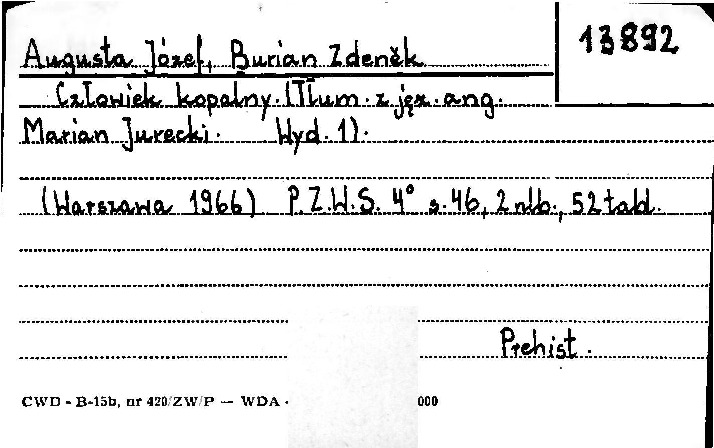 13892
Augusta Józef, Burian Zdeněk
Człowiek kopalny. (Tłum. z jęz. ang.
Marian Jurecki. Wyd. 1).
(Warszawa 1966) P.Z.W.S. 4° s. 46, 2 nlb., 52 tabl.
Prehist.
CWD - B-15b, nr 420/ZW/P — WDA - 000